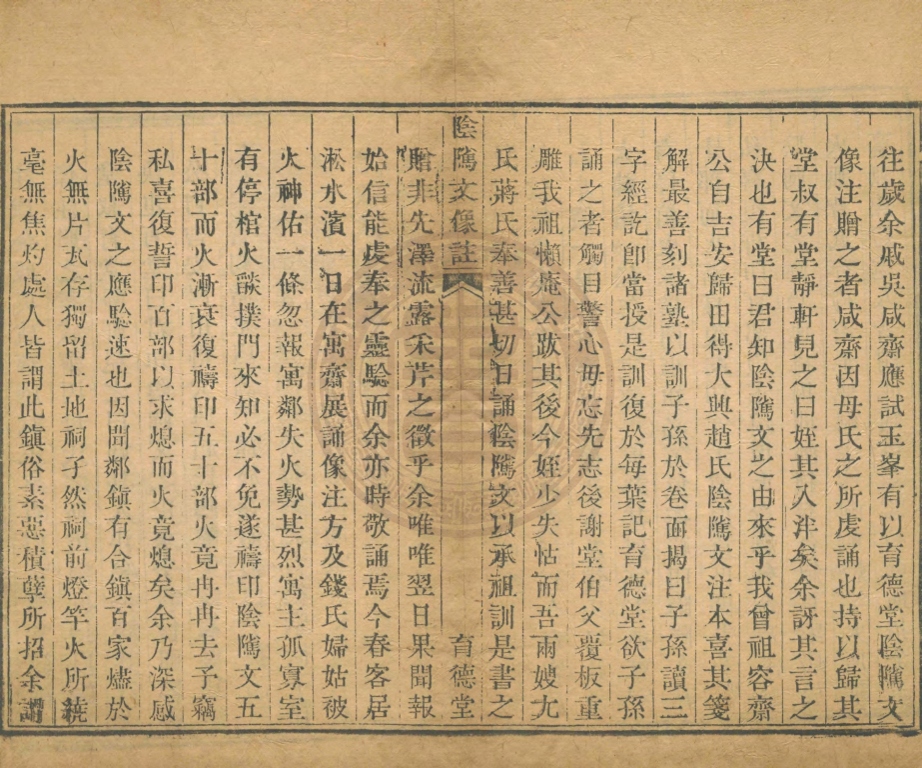 往歲余戚吳咸齋應試玉峯有以育德堂陰隲文
像注贈之者咸齋因母氏之所虔誦也持以歸其
堂叔有堂靜軒見之曰姪其入泮矣余訝其言之
決也有堂曰君知陰隲文之由來乎我曾祖容齋
公自吉安歸田得大興趙氏陰隲文注本喜其箋
解最善刻諸塾以訓子孫於卷面揭曰子孫讀三
字經訖卽當授是訓復於每葉記育德堂欲子孫
誦之者觸目警心毋忘先志後謝堂伯父覆板重
雕我祖懶庵公跋其後今姪少失怙而吾兩嫂尢
氏蔣氏奉善甚切日誦陰隲文以承祖訓是書之
陰隲文像註
育德堂
贈非先澤流露采芹之徵乎余唯唯翌日果聞報
始信能虔奉之靈驗而余亦時敬誦焉今春客居
淞水濱一日在寓齋展誦像注方及錢氏婦姑被
火神佑一條忽報寓鄰失火勢甚烈寓主孤寡室
有停棺火燄撲門來知必不免遂禱印陰隲文五
十部而火漸衰復禱印五十部火竟冉冉去予竊
私喜復誓印百部以求熄而火竟熄矣余乃深感
陰隲文之應驗速也因聞鄰鎮有合鎮百家燼於
火無片瓦存獨留土地祠孑然祠前燈竿火所繞
毫無焦灼處人皆謂此鎮俗素惡積孽所招余謂